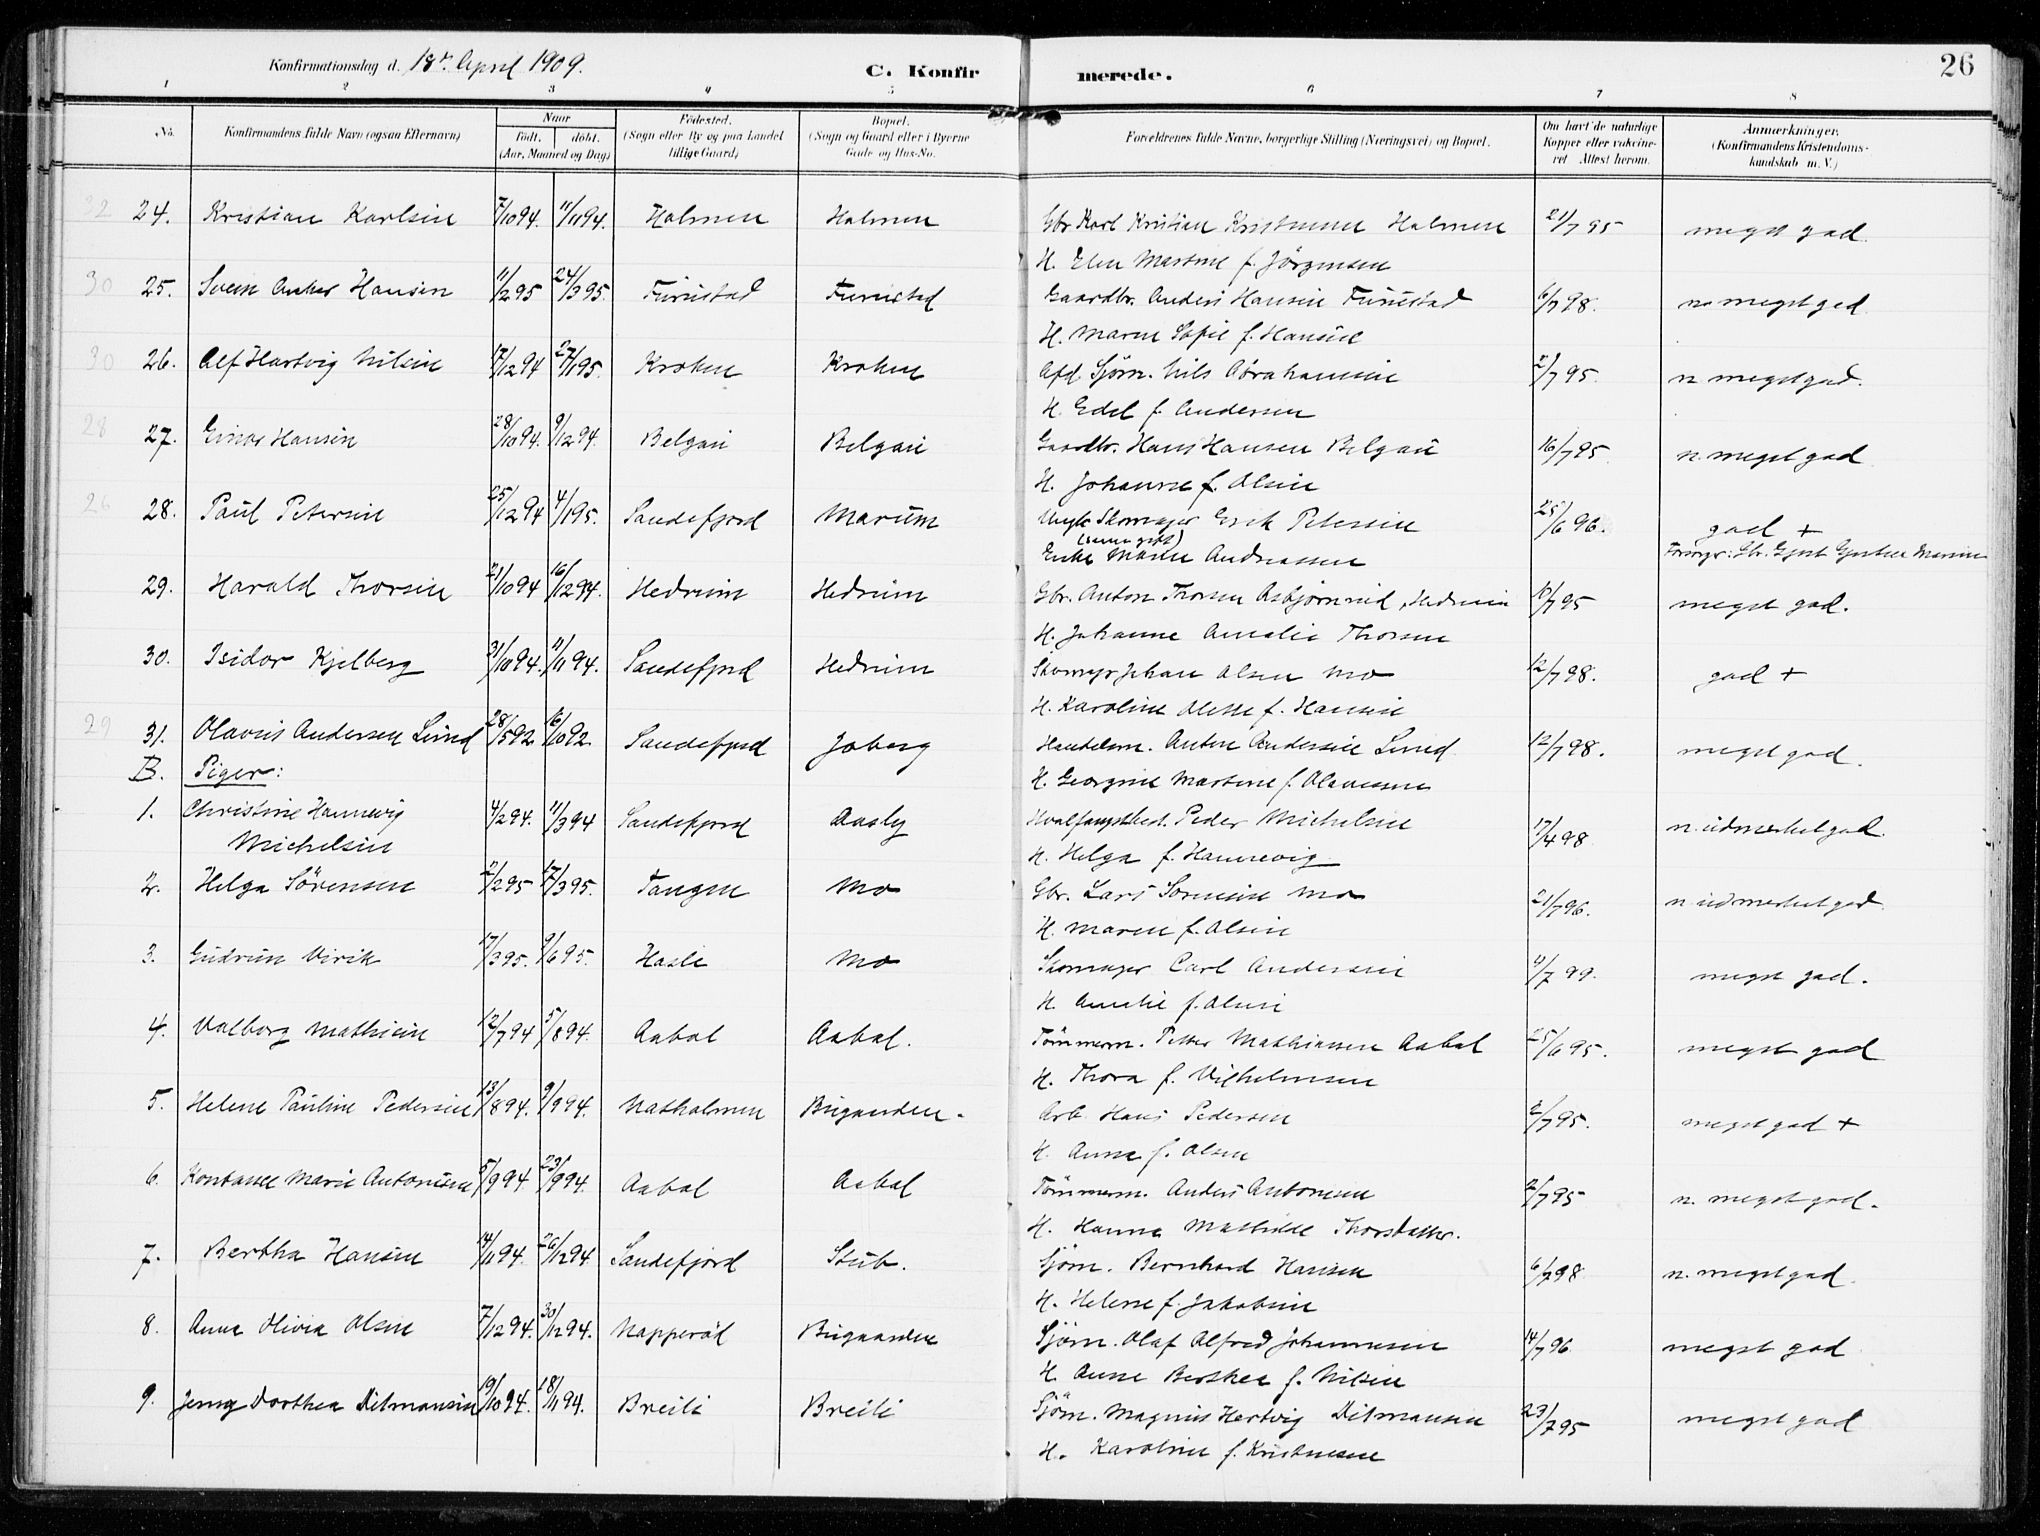 Konfirmationsdag d. 18de April 1909.
C. Konfirmerede.
26
1 2 3 4 5 6 7 8
No.
Konfirmandens fulde Navn (ogsaa Efternavn)
Naar
født. døbt.
(Aar, Maaned og Dag)
Fødested.
(Sogn eller By og paa Landet
tillige Gaard)
Bopæl.
(Sogn og Gaard eller i Byerne
Gade og Hus-No.
Forældrenes fulde Navne, borgerlige Stilling (Næringsvei) og Bopæl.
Om havt de naturlige
Kopper eller vakcine-
ret Attest herom.
Anmærkninger.
(Konfirmandens Kristendoms-
kundskab m. V.)
32 24. Kristian Karlsen 7/10 94. 11/11 94. Holmen Holmen Gbr Karl Kristian Kristensen Holmen 21/7 95 meget god
H. Elen Martine f. Jörgensen
30 25. Svein Anker Hansen 11/2 95 24/3 95. Furustad Furustad Gaardbr. Anders Hansen Furustad 6/7 98. n. meget god
H. Maren Sofie f. Hansen
30 26. Alf Hartvig Nilsen 17/12 94 27/1 95. Kroken Kroken Afd Sjöm. Nils Abrahamsen 2/7 95. n meget god.
H. Edel f. Andersen
28 27. Einar Hansen 28/10 94. 9/12 94. Belgau Belgau Gaardbr. Hans Hansen Belgau 16/7 95 n. meget god
H. Johanne f. Olsen
26 28. Paul Petersen 25/12 94 4/1 95. Sandefjord Marum Ungk. Skomager Erik Petersen 25/6 96. god +
Enke Maren Andreassen
29. Harald Thorsen 21/10 94 16/12 94. Hedrum Hedrum Gbr. Anton Thorsen Asbjörnröd, Hedrum 10/7 95 meget god.
H. Johanne Amalie Thorsen
30. Isidor Kjelberg 31/10 94. 11/11 94. Sandefjord Hedrum Skomager Johan Olsen Mo 12/7 98. god +
H. Karoline Olette f. Hansen
29 31. Olavus Andersen Lund 28/5 92 16/10 92 Sandefjord Joberg Handelsm. Anton Andersen Lund 12/7 98. meget god.
H. Georgine Martine f. Olavesen
B. Piger:
1. Christine Hannevig 4/2 94. 11/3 94 Sandefjord Aasly Hvalfangstbest. Peder Michelsen 17/4 98 n. udmerket god.
Michelsen
H. Helga f. Hannevig
2. Helga Sörensen 2/2 95 17/3 95. Tangen Mo Gbr. Lars Sorensen Mo 21/7 96. n udmerket god.
H. Maren f. Olsen
3. Gudrun Virik 17/3 95. 9/6 95. Hasle Mo Skomager Carl Andersen 11/7 99. meget god.
H. Amalie f. Olsen
4. Valborg Mathisen 12/7 94 5/8 94. Aabol Aabol. Tömmerm. Petter Mathiassen Aabol 25/6 95. meget god
H. Thora f. Vilhelmsen
5. Helene Pauline Pedersen 13/8 94. 9/9 94. Natholmen Bugaarden. Arb. Hans Pedersen 2/7 95. meget god +
H. Anna f. Olsen
6. Kontanse Marie Antonisen 5/9 94 23/9 94. Aabol Aabol Tömmerm. Anders Antonsen 2/7 95 n. meget god.
H. Hanna Mathilde Thorsdatter.
7. Bertha Hansen 14/11 94. 26/12 94. Sandefjord Stub. Sjöm. Bernhard Hansen 6/7 98 n. meget god.
H. Helene f. Jakobsen
8. Anna Olivia Olsen 7/12 94. 30/12 94. Napperöd Bugaarden Sjöm. Olaf Alfred Johannesen 14/7 96 meget god
H. Anne Berthea f. Nilsen
9. Jenny Dorthea Ditmansen 19/10 94. 18/11 94. Breili Breili Sjöm. Magnus Hertvig Ditmansen 23/7 95 meget god
H. Karoline f. Kristensen